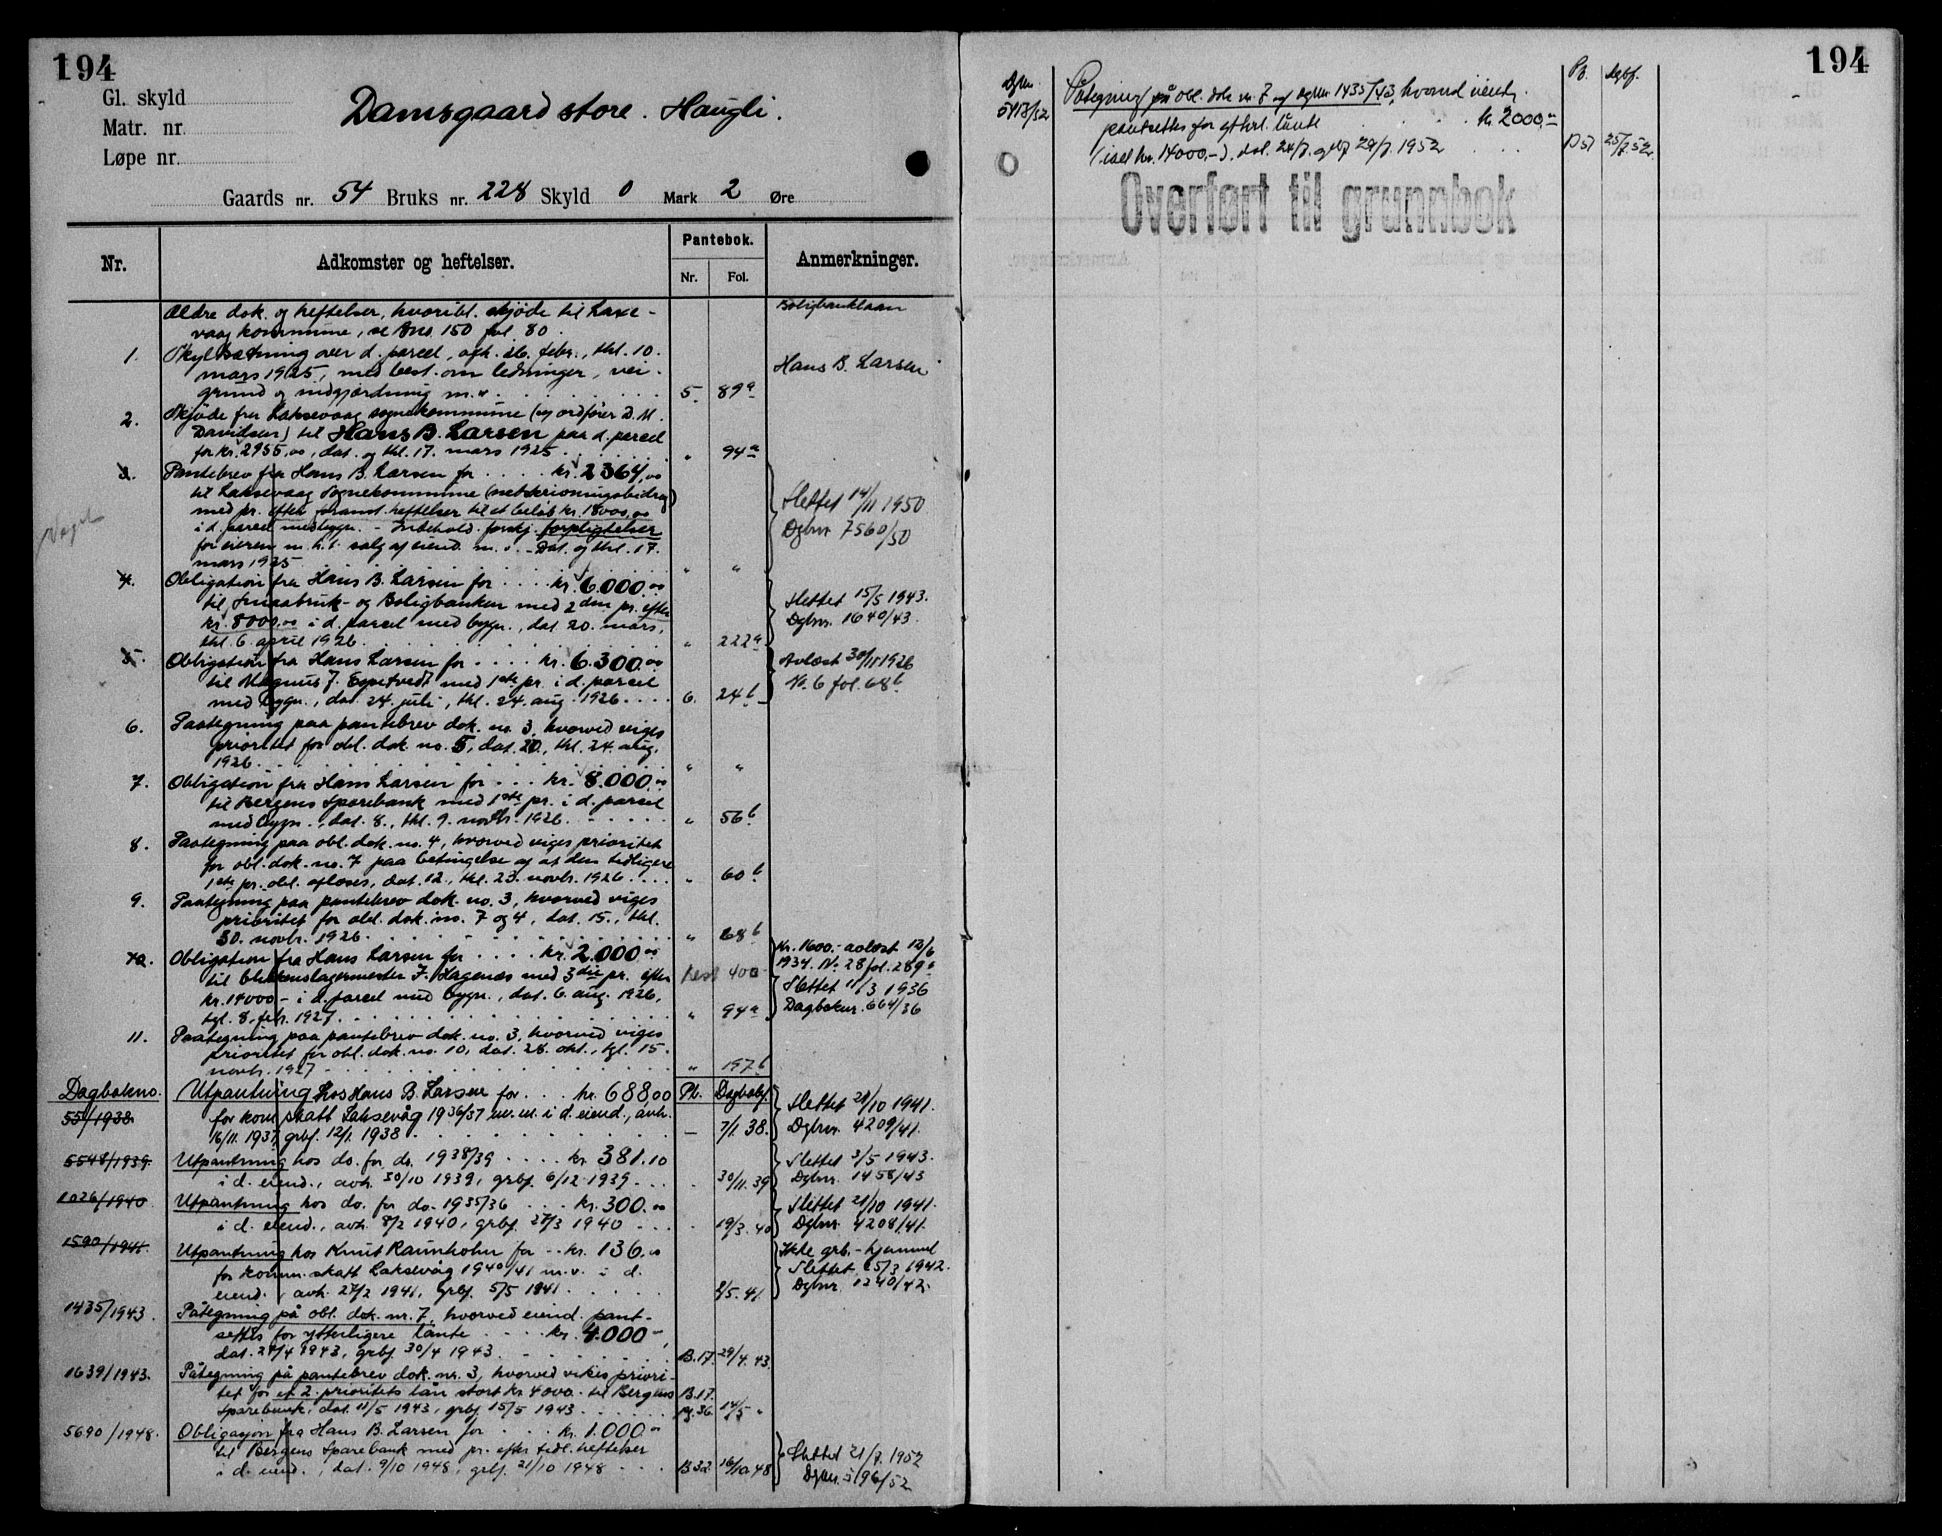 194
Gl. skyld
Matr. nr.
Løpe nr.
Damsgaard store. Haugli.
Gaards nr. 54 Bruks nr. 228 Skyld 0 Mark 2 Øre
Nr. Adkomster og heftelser. Pantebok. Nr. Fol. Anmerkninger.
Ældre dok. og heftelser, hvoribl. skjøde til Laxe- Boligbanklaan
vaag kommune, se Bno. 150 fol. 80.
1. Skyldsætning over d. parcel, afh. 26. febr., thl. 10.
mars 1925, med best. om ledninger, vei- Hans B. Larsen
grund og indgjærdning m.v. 5. 89a
2. Skjøde fra Laksevaag sognekommune (v/ ordfører D. M.
Davidsen) til Hans B. Larsen paa d. parcel
for kr. 2955,00, dat. og thl. 17. mars 1925 " 94a
3. Pantebrev fra Hans B. Larsen for kr. 2364,00
til Laksevaag Sognekommune (nedskrivningsbidrag)
med pr. efter foranst. heftelser til et beløb kr. 18000,00 Slettet 14/11 1950
i d. parcel med bygn. - Indehold. forskj. forpligtelser Dgbnr 7560/50
for eieren m.h.t. salg af eiend. m.v. - Dat. og thl. 17.
mars 1925 " "
4. Obligation fra Hans B. Larsen for kr. 6.000.00
til Smaabruk- og Boligbanken med 2den pr. efter Slettet 15/5 1943.
kr. 8000.00 i d. parcel med bygn., dat. 20. mars, Dgbnr. 1640/43.
thl. 6. april 1926. " 222a
5. Obligation fra Hans Larsen for kr. 6.300.00 Avløst 30/11 1926
til Magnus J. Espetvedt med 1ste pr. i d. parcel No. 6 fol. 68b
med bygn., dat. 24. juli, thl. 24. aug. 1926. 6. 24b
6. Paategning paa pantebrev dok. no. 3, hvorved viges
prioritet for obl. dok. no. 5, dat. 20., thl. 24. aug.
1926. " "
7. Obligation fra Hans Larsen for kr. 8.000.00
til Bergens Sparebank med 1ste pr. i d. parcel
med bygn., dat. 8., thl. 9. novbr. 1926. " 56b
8. Paategning paa obl. dok. no. 4, hvorved viges prioritet
for obl. dok. no. 7 paa betingelse af at den tidligere
1ste pr. obl. afløses, dat. 12., thl. 23. novbr. 1926. " 60b
9. Paategning paa pantebrev dok. no. 3, hvorved viges
prioritet for obl. dok. no. 7 og 4, dat. 15., thl.
30. novbr. 1926. " 68b
10. Obligation fra Hans Larsen for kr. 2.000.00 Kr. 1600.- avløst 12/6
til blikkenslagermester J. Hagenæs med 3die pr. efter rest 400 1934. No. 28 fol. 289a
kr. 14000,- i d. parcel med bygn., dat. 6. aug. 1926, Slettet 11/3 1936
tgl. 8. febr. 1927. " 94a Dagboknr. 664/36
11. Paategning paa pantebrev dok. no. 3, hvorved viges
prioritet for obl. dok. no. 10, dat. 28. okt., tgl. 15.
novbr. 1927 " 197b
Dagbokno. Utpantning hos Hans B. Larsen for kr. 688,00 Pb. Dagbokf. Slettet 21/10 1941.
55/1938 for kom. skatt Laksevåg 1936/37 m.m. i d. eiend., avh. Dgbnr. 4209/41.
16/11. 1937, grbf. 12/1. 1938 — 7/1. 38.
5548/1939. Utpantning hos do. for do. 1938/39 kr. 381.10 Slettet 3/5 1943.
i d. eiend., avh. 30/10 1939, grbf. 6/12 1939. 30/11. 39 Dgbnr. 1458/43
1026/1940 Utpantning hos do. for do. 1935/36 kr. 300.00 Slettet 21/10 1941.
i d. eiend., avh. 8/2 1940, grbf. 27/3 1940 19/3. 40 Dgbnr. 4208/41.
1590/1941. Utpantning hos Knut Raunholm for kr. 136.00 Ikke grb. - hjemmel
for komm. skatt Laksevåg 1940/41 m.v. i d. Slettet 25/3 1942.
eiend., avh. 27/2 1941, grbf. 5/5 1941. 2/5. 41 Dgbnr. 1240/42.
1435/1943. Påtegning på obl. dok. nr. 7, hvorved eiend. pant-
settes for ytterligere lånte kr. 4.000
dat. 27/4 1943, grbf. 30/4 1943. B.17. 29/4. 43.
1639/1943. Påtegning på pantebrev dok. nr. 3, hvorved vikes priori-
tet for et 2. prioritets lån stort kr. 4000.- til Bergens B.17.
Sparebank, dat. 11/5 1943, grbf. 15/5 1943 pg. 36. 14/5 "
5690/1948. Obligasjon fra Hans B. Larsen for kr. 1.000.00
til Bergens Sparebank med pr. efter tidl. heftelser Slettet 21/7. 1952
i d. eiend., dat. 9/10 1948, grbf. 21/10 1948 B 32. 16/10. 48 Dgbnr. 5196/52
194
Dgbnr. Pb. Dgbf.
5413/52 Påtegning på obl. dok. nr. 7 og dgbnr 1435/43, hvorved eiend.
pantsettes for ytterl. lånte kr. 2000,00
(ialt kr. 14000,-), dat. 24/7. grbf 29/7. 1952 B 57 25/7.52.
Overført til grunnbok